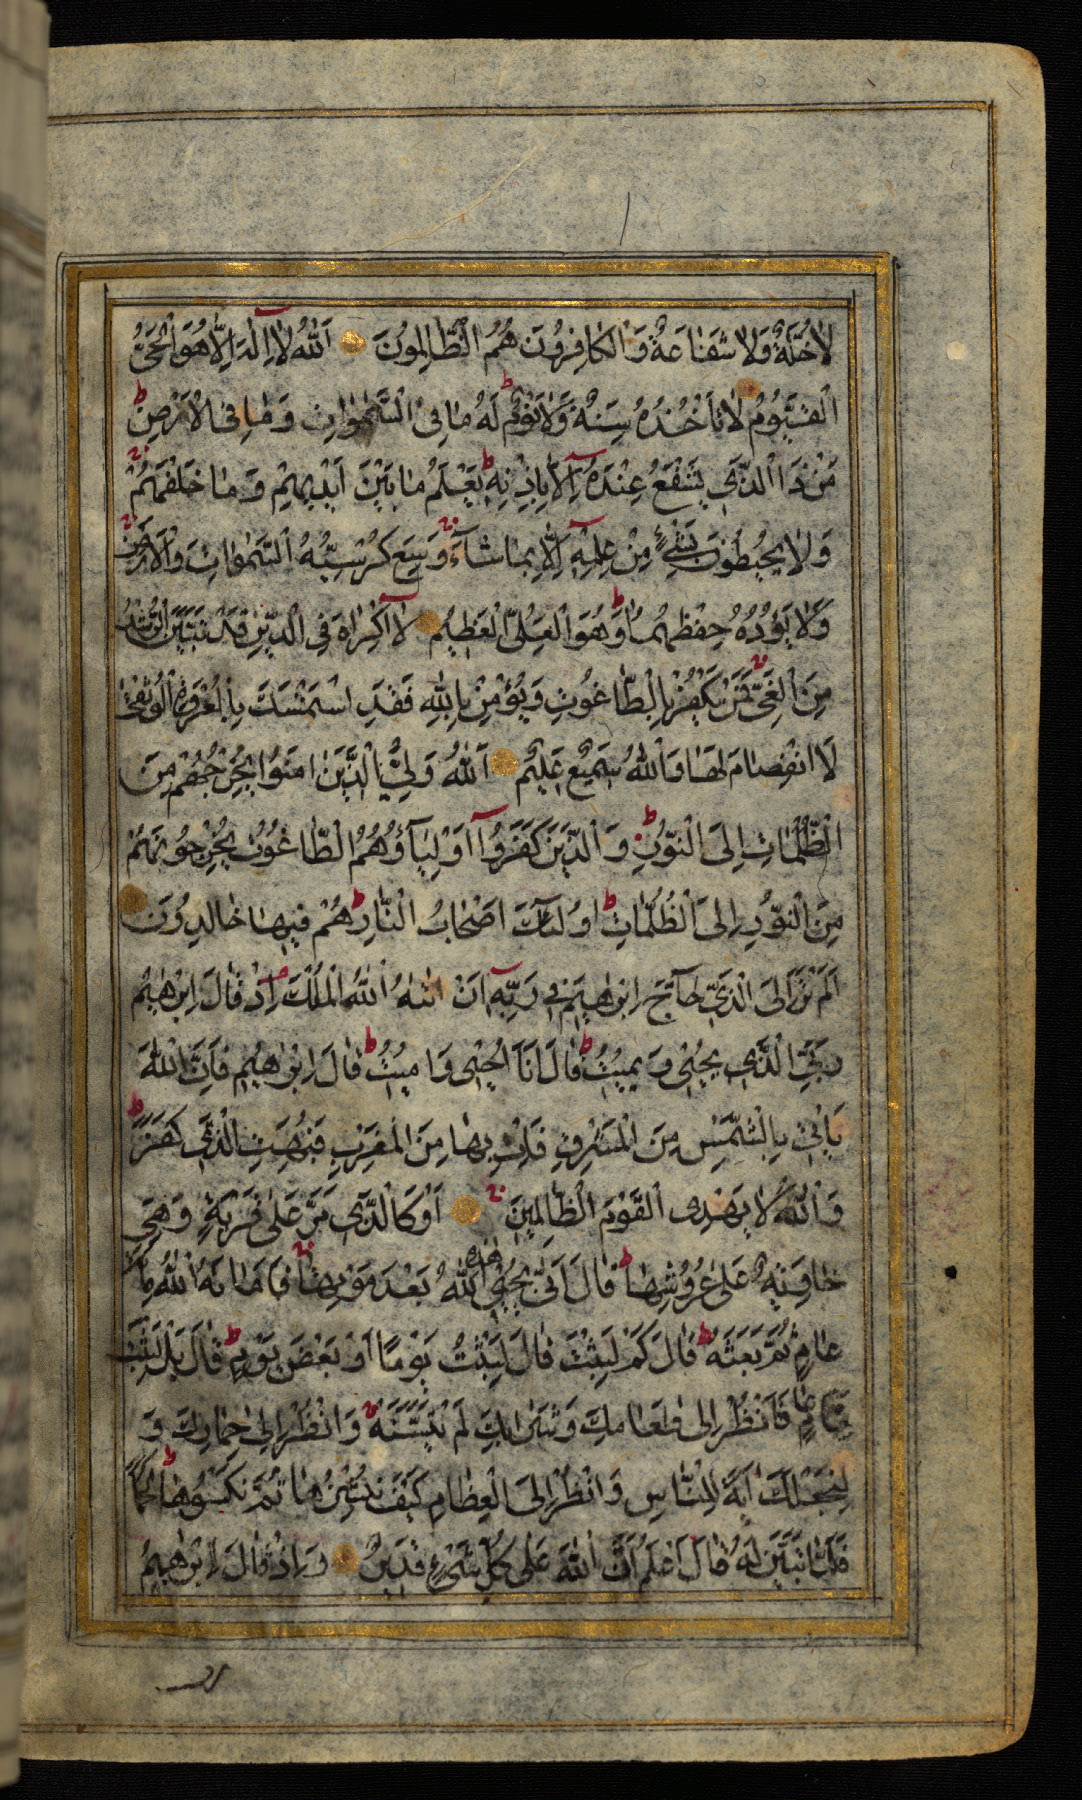 لَا خُلَّةٌ وَلَا شَفَاعَةٌ وَالْكَافِرُونَ هُمُ الظَّالِمُونَ اَللّٰهُ لَا اِلٰهَ اِلَّا هُوَ الْحَىُّ
الْقَيُّومُ لَا تَأْخُذُهُ سِنَةٌ وَلَا نَوْمٌ ط لَهُ مَا فِى السَّمٰوَاتِ وَمَا فِى الْاَرْضِ ط
مَنْ ذَا الَّذِى يَشْفَعُ عِنْدَهُ اِلَّا بِاِذْنِهِ ط يَعْلَمُ مَا بَيْنَ اَيْدِيهِمْ وَمَا خَلْفَهُمْ
وَلَا يُحِيطُونَ بِشَىْءٍ مِنْ عِلْمِهِ اِلَّا بِمَا شَآءَ وَسِعَ كُرْسِيُّهُ السَّمٰوَاتِ وَالْاَرْضَ
وَلَا يَؤُدُهُ حِفْظُهُمَا ط وَهُوَ الْعَلِىُّ الْعَظِيمُ لَا اِكْرَاهَ فِى الدِّينِ قَدْ تَبَيَّنَ الرُّشْدُ
مِنَ الْغَىِّ فَمَنْ يَكْفُرْ بِالطَّاغُوتِ وَيُؤْمِنْ بِاللّٰهِ فَقَدِ اسْتَمْسَكَ بِالْعُرْوَةِ الْوُثْقٰى
لَا انْفِصَامَ لَهَا وَاللّٰهُ سَمِيعٌ عَلِيمٌ اَللّٰهُ وَلِىُّ الَّذِينَ اٰمَنُوا يُخْرِجُهُمْ مِنَ
الظُّلُمَاتِ اِلَى النُّورِ ط وَالَّذِينَ كَفَرُوا اَوْلِيَآؤُهُمُ الطَّاغُوتُ يُخْرِجُونَهُمْ
مِنَ النُّورِ اِلَى الظُّلُمَاتِ ط اُولٰئِكَ اَصْحَابُ النَّارِ ط هُمْ فِيهَا خَالِدُونَ
اَلَمْ تَرَ اِلَى الَّذِى حَآجَّ اِبْرٰهِيمَ فِى رَبِّهِ اَنْ اٰتٰهُ اللّٰهُ الْمُلْكَ اِذْ قَالَ اِبْرٰهِيمُ
رَبِّىَ الَّذِى يُحْيِى وَيُمِيتُ ط قَالَ اَنَا اُحْيِى وَاُمِيتُ ط قَالَ اِبْرٰهِيمُ فَاِنَّ اللّٰهَ
يَاْتِى بِالشَّمْسِ مِنَ الْمَشْرِقِ فَاْتِ بِهَا مِنَ الْمَغْرِبِ فَبُهِتَ الَّذِى كَفَرَ ط
وَاللّٰهُ لَا يَهْدِى الْقَوْمَ الظَّالِمِينَ اَوْ كَالَّذِى مَرَّ عَلٰى قَرْيَةٍ وَهِىَ
خَاوِيَةٌ عَلٰى عُرُوشِهَا ط قَالَ اَنّٰى يُحْيِى هٰذِهِ اللّٰهُ بَعْدَ مَوْتِهَا فَاَمَاتَهُ اللّٰهُ مِائَةَ
عَامٍ ثُمَّ بَعَثَهُ ط قَالَ كَمْ لَبِثْتَ قَالَ لَبِثْتُ يَوْمًا اَوْ بَعْضَ يَوْمٍ ط قَالَ بَلْ لَبِثْتَ
مِائَةَ عَامٍ فَانْظُرْ اِلٰى طَعَامِكَ وَشَرَابِكَ لَمْ يَتَسَنَّهْ وَانْظُرْ اِلٰى حِمَارِكَ وَ
لِنَجْعَلَكَ اٰيَةً لِلنَّاسِ وَانْظُرْ اِلَى الْعِظَامِ كَيْفَ نُنْشِزُهَا ثُمَّ نَكْسُوهَا لَحْمًا ط
فَلَمَّا تَبَيَّنَ لَهُ قَالَ اَعْلَمُ اَنَّ اللّٰهَ عَلٰى كُلِّ شَىْءٍ قَدِيرٌ وَاِذْ قَالَ اِبْرٰهِيمُ